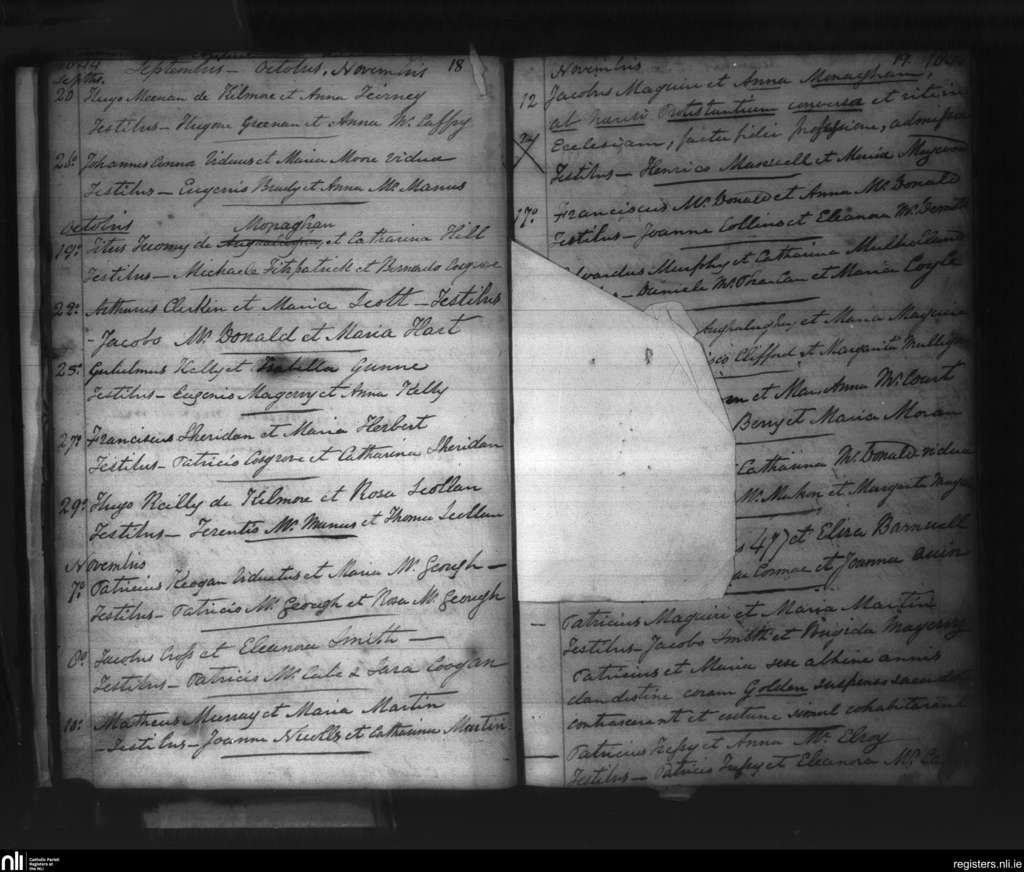 Septembris - Octobris, Novembris 18
Septbs.
20 Hugo Meenan de Kilmore et Anna Tierney
Testibus - Hugone Greenan et Anna Mc Caffry
Johannes Conna Viduus et Maria Moore vidua
Testibus - Eugenio Brady et Anna Mc Manus
Octobris Monaghan
19º Titus Twomy de et Catharina Hill
Testibus - Michaele Fitzpatrick et Bernardo Cosgrove
22º Arthurus Clerkin et Maria Scott - Testibus
- Jacobo Mc Donald et Maria Hart
25º Gulielmus Kelly et Isabella Gunne
Testibus - Eugenio Magerry et Anna Kelly
27º Franciscus Sheridan et Maria Herbert
Testibus - Patricio Cosgrove et Catharina Sheridan
29º Hugo Reilly de Kilmore et Rosa Scollan
Testibus - Terentio Mc Manus et Thoma Scollan
Novembris
7º Patricius Keogan Viduatus et Maria Mc Geough -
Testibus - Patricio Mc Geough et Rosa Mc Geough
8º Jacobus Cross et Eleanora Smith -
Testibus - Patricio Mc Cabe & Sara Coogan
10º Matheus Murray et Maria Martin
- Testibus - Joanne et Catharina Martin
Novembris 19
12 Jacobus Maguire et Anna Monaghan,
ab heresi Protestantium conversa et rite in
Ecclesiam, facta fidei professione, admissa
Testibus - Henrico Maxwell et Maria
17º Franciscus Mc Donald et Anna Mc Donald
Testibus - Joanne Collins et Eleanora Mc
Murphy et Catharina Mulholland
- Daniele et Maria Coyle
et Maria Maguire
Clifford et Margarita Mulligan
et Mar. Anna Mc Court
Berry et Maria Moran
Catharina Mc Donald vidua
Mc Mahon et Margarita
477 et Eliza Barnwell
Cormac et Joanna Quin
- Patricius Maguire et Maria Martin
Testibus - Jacobo Smith et Brigida Magerry
Patricius et Maria sese abhinc annis
clandestine coram Golden suspenso sacerdote
contraxerunt et simul cohabitarant
- Patricius et Anna Mc Elroy
Testibus - Patricio et Eleanora Mc
nli
Catholic Parish
Registers at
the NLI
registers.nli.ie